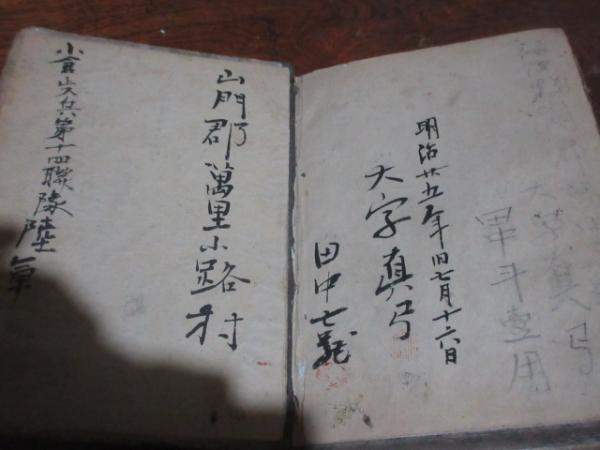 大字眞弓
明治廿五年旧七月十六日
大字眞弓
田中七
山門郡萬里小路村
小倉歩兵第十四聯隊陸軍